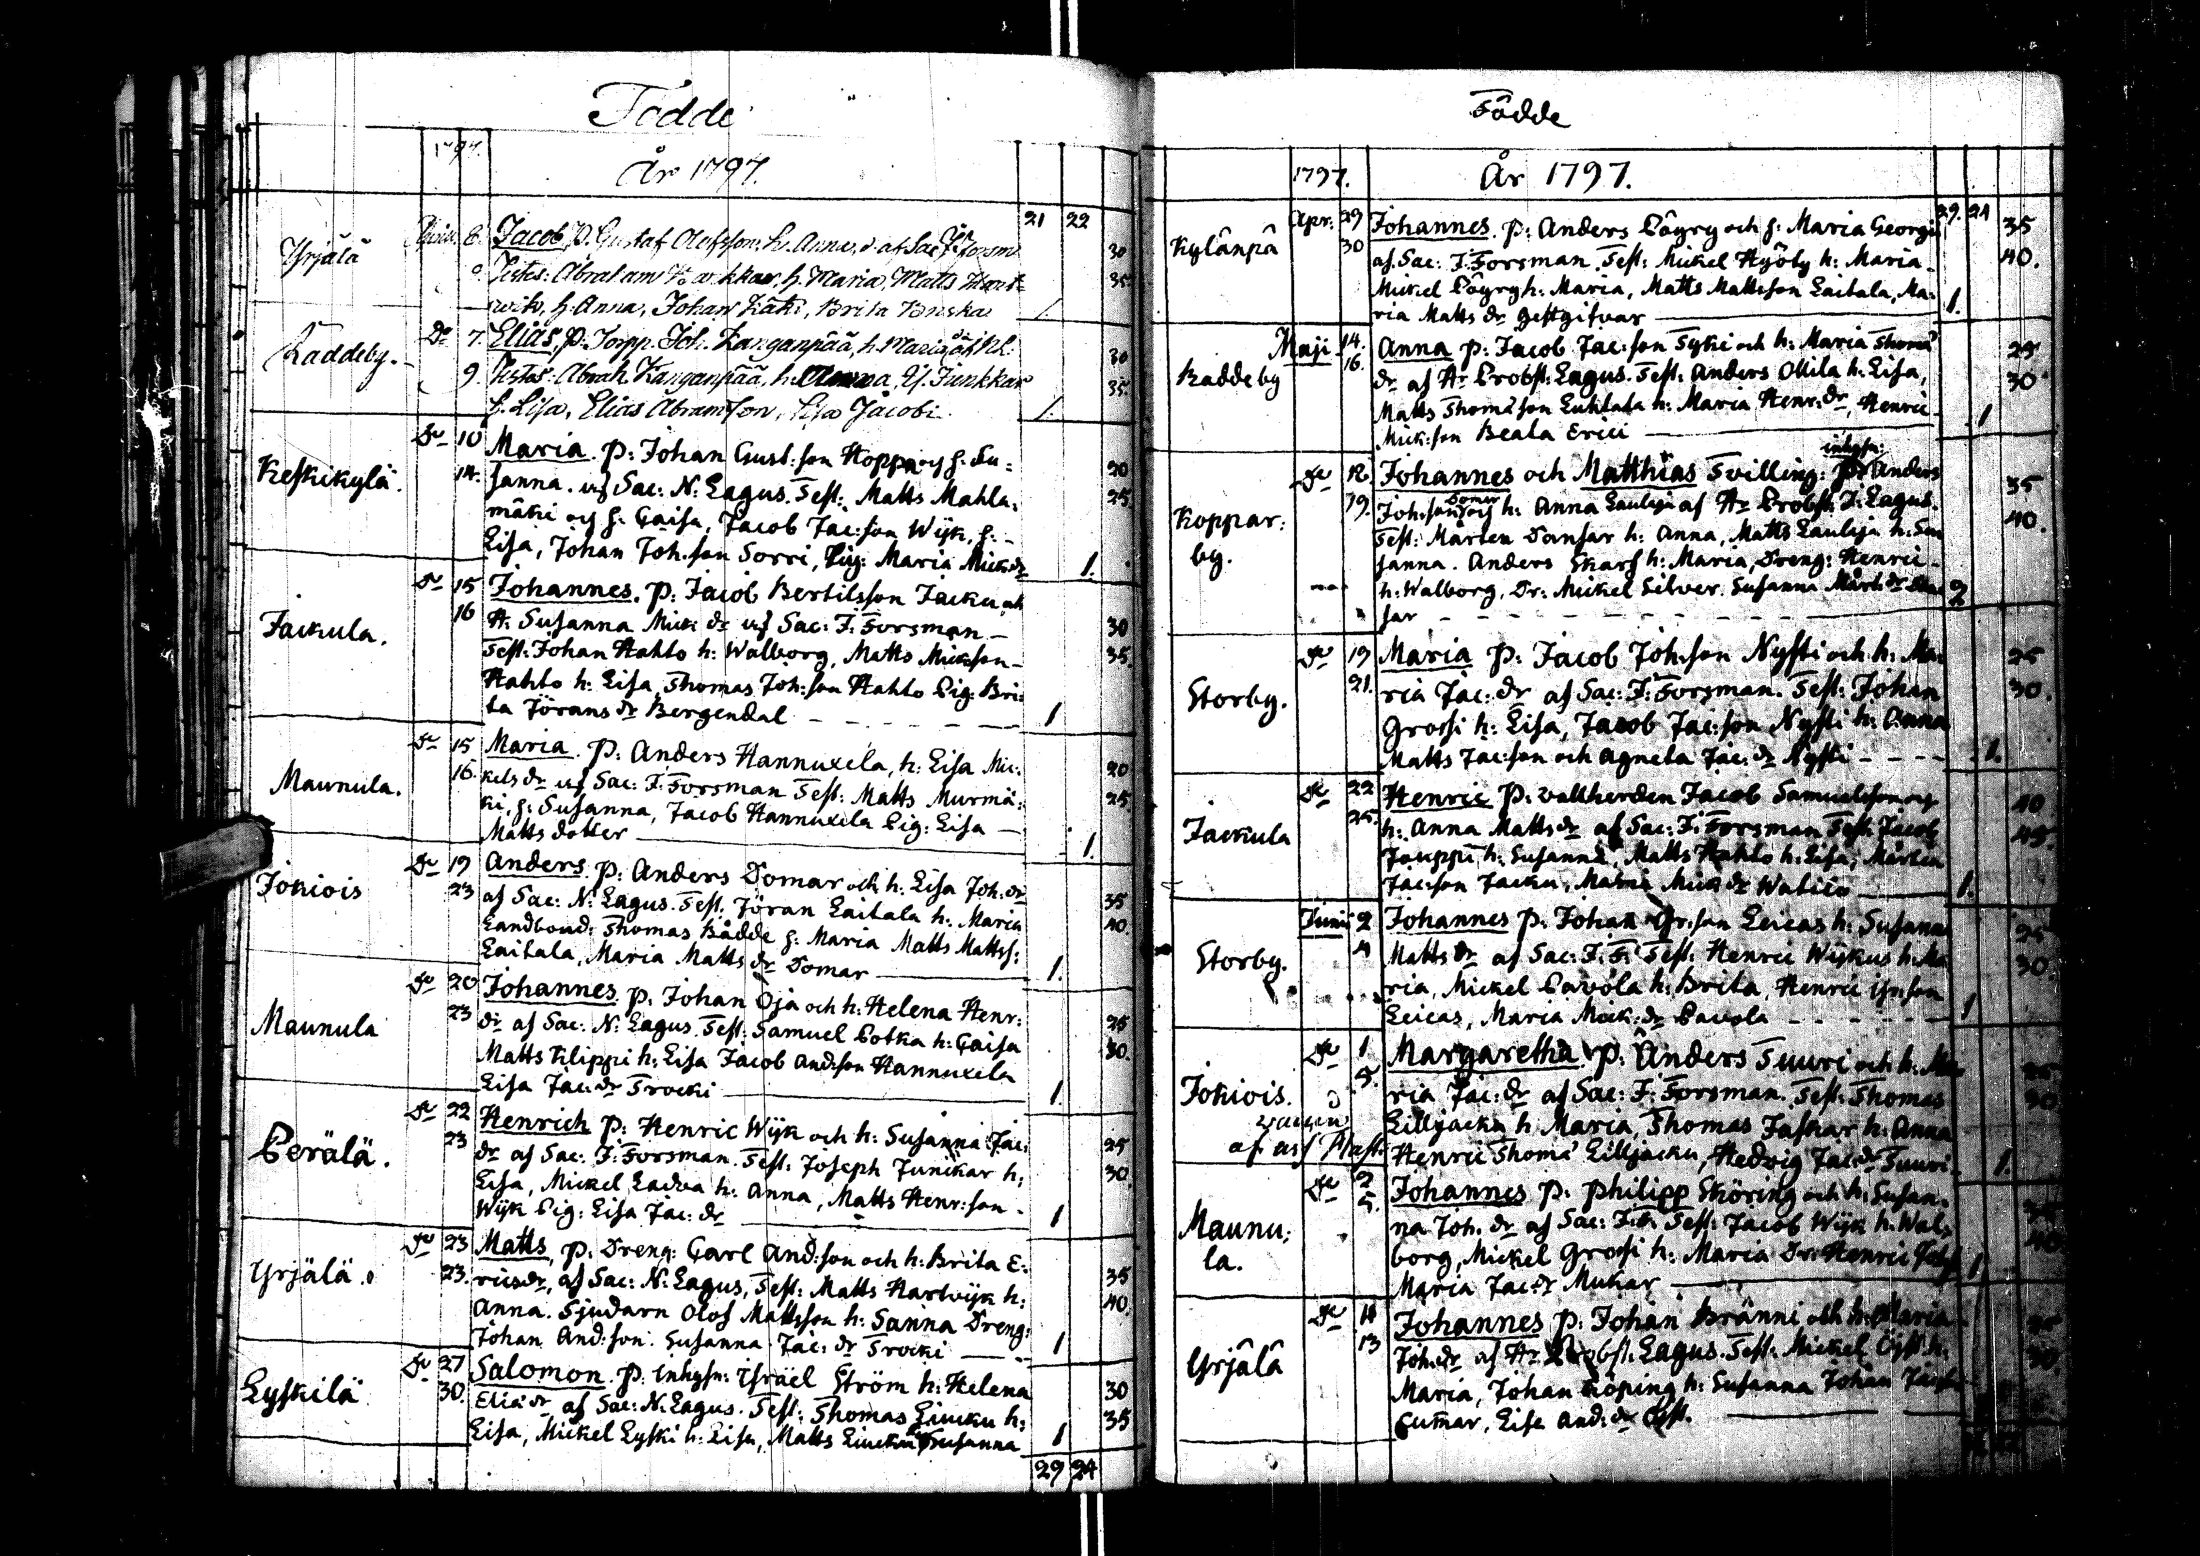 Födde
1797.
År 1797.
21 22
Yrjälä
8. Jacob, P. Gustaf Olofsson, h. Anna, af Sac: Forsm
30
Testes: Abraham h. Maria, Matts
35
h. Anna, Johan Brita
1
Raddeby.
Do 7. Elias, P. Torpp. Joh. Kanganpää, h. Maria
30
9. Testes: Abrah Kanganpää, h: Anna, Junkkar
35
h. Lisa, Elias Abramsson, Lisa Jacobi
1.
Keskikylä.
Do 10 Maria. P: Johan Gust:son Hoppa och h: Su:
20
14. sanna. af Sac: N: Lagus. Test: Matts Mahla:
25
mäki och h: Caisa, Jacob Jac:son Wijk, h: -
Lisa, Johan Joh:son Sorri, Pig: Maria Mick:dr
1.
Jackula.
Do 15 Johannes. P: Jacob Bertilsson Jacku och
16 H. Susanna Mick: dr af Sac: F: Forsman -
30
Test: Johan Hahto h: Walborg, Matts Mickson -
35.
Hahto h: Lisa, Thomas Joh:son Hahto Pig: Bri:
ta Jörans dr Bergendal
1
Maunula.
Do 15 Maria. P: Anders Hannuxela, h: Lisa Mic:
20
16. kels dr af Sac: F: Forsman Test: Matts Murmä:
25
ki, h: Susanna, Jacob Hannuxela Pig: Lisa
Matts dotter
1.
Jokiois
Do 19 Anders. P: Anders Domar och h: Lisa Joh. dr
35
23 af Sac: N: Lagus. Test. Jöran Laitala h: Maria
40.
Landbond: Thomas Bådde h: Maria Matts Mattss:
Laitala, Maria Matts dr Domar
1.
Maunula
Do 20 Johannes. P: Johan Oja och h: Helena Henr:
25
23 dr af Sac: N: Lagus. Test: Samuel Potka h: Caisa
30.
Matts Filippi h: Lisa Jacob And:son Hannuxela
Lisa Jac: dr Trocki
1.
Perälä.
Do 22 Henrich P: Henric Wijk och h: Susanna Jac:
25
23 dr af Sac: F: Forsman. Test: Joseph Junckar h:
30.
Lisa, Mickel Ladva h: Anna, Matts Henr:son -
Wijk Pig: Lisa Jac: dr
1
Yrjälä.
Do 23 Matts, P. Dreng: Carl And:son och h: Brita E:
35
23. ricsdr, af Sac: N: Lagus, Test: Matts Hartvijk h:
40.
Anna. Sjudarn Olof Mattsson h: Sanna Dreng:
Johan And:son. Susanna Jac: dr Trocki
1
Lyskilä
Do 27 Salomon. P. Inhysn: Israël Ström h: Helena
30
30. Eliæ dr af Sac: N: Lagus. Test: Thomas Liucku h:
35
Lisa, Mickel Lyski h: Lisa, Matts Liucku Susanna
1
29 24
Födde
1797.
År 1797.
29. 24
Kylänpä
Apr: 29 Johannes. P: Anders Pöyry och h: Maria Georgii
35
30 af Sac: F: Forsman. Test: Mickel Hyöty h: Maria -
40.
Mickel Pöyry h: Maria, Matts Mattsson Laitala, Ma:
ria Matts dr Gestgifvar
1.
Raddeby
Maji 14. Anna P: Jacob Jac:son Tyki och h: Maria Thomæ
25
16. dr af Hr Probst: Lagus. Test: Anders Ollila h: Lisa,
30
Matts Thomæson Luhtala h: Maria Henr: dr, Henric -
Mick:son Beata Erici
1
Koppar:
by.
inhysn:
Do 12. Johannes och Matthias Tvilling: P: Anders
35
19. Joh:son Domar och h: Anna Lauleja af Hr Probst: J: Lagus.
40.
Test: Mårten Dansar h: Anna, Matts Lauleja h: Su
sanna. Anders Skarf h: Maria, Dreng: Henric -
h: Walborg, Dr: Mickel Silver. Susanna Mårt: dr Dan
sar
2
Storby.
Do 19 Maria P: Jacob Joh:son Nysti och h: Ma:
25
21. ria Jac: dr af Sac: F: Forsman. Test: Johan
30.
Grossi h: Lisa, Jacob Jac:son Nysti h: Anna
Matts Jac:son och Agneta Jac: dr Nysti
1.
Jackula
Do 22 Henric P: vallherden Jacob Samuelsson och
40
25. h: Anna Matts dr af Sac: F: Forsman Test: Jacob
45.
Jauppi h: Susanna, Matts Hahto h: Lisa, Mårten
Jac:son Jacku, Maria Mick dr
1.
Storby.
Junii 2 Johannes P: Johan Gr:son Leicas h: Susanna
25
4 Matts dr af Sac: F: F: Test: Henric Wijkus h: Ma
30.
ria, Mickel Pavola h: Brita, Henric son
Leicas, Maria Mick: dr Pavola
1
Jokiois.
Do 1 Margaretha P: Anders Tuuri och h: Ma
5. ria Jac: dr af Sac: F: Forsman. Test: Thomas
30
Lilljacku h Maria, Thomas Jaskar h: Anna
Henric Thomæ Lilljacku, Hedvig Jac: dr Tuuri -
1.
Maunu:
la.
Do 2 Johannes P: Philipp Sköring och h: Susan:
5. na Joh. dr af Sac: F: F: Test: Jacob Wijk h: Wal:
40
borg, Mickel Grossi h: Maria Dr: Henric
Maria Jac: dr Mukar
1.
Yrjälä
Do 11 Johannes P: Johan Bränni och h: Maria
13 Joh. dr af Hr Probst: Lagus. Test: Mickel Öyst h:
30.
Maria, Johan Köping h: Susanna Johan
Cumar, Lisa And: dr Öyst.